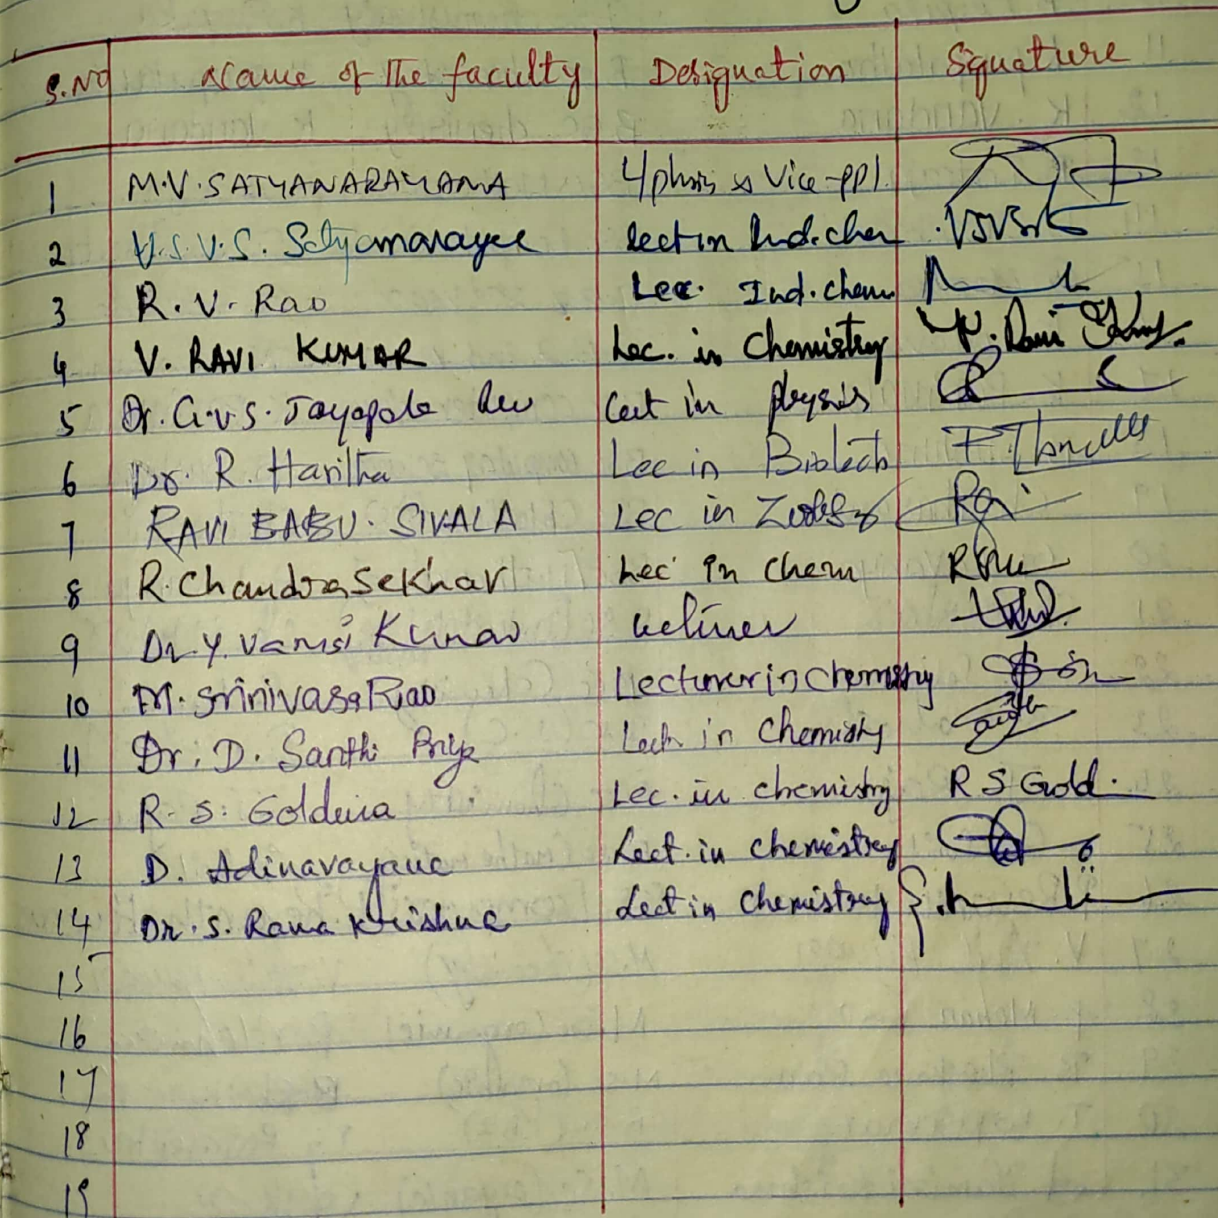 S.No Name of the faculty Designation Signature
1 M.V.SATYANARAYANA Vice-ppl.
2 V.S.V.S. Satyanarayana Lect in Ind.chem
3 R.V. Rao Lec. Ind.chem
4 V. RAVI KUMAR Lec. in Chemistry V. Ravi Kumar.
5 Dr. G.V.S. Jayapala Rao Lect in physics
6 Dr. R. Haritha Lec in Biotech
7 RAVI BABU. SIVALA Lec in Zoology Ravi
8 R. Chandra Sekhar Lec in Chem
9 Dr. Y. Vamsi Kumar Lecturer
10 M. Srinivasa Rao Lecturer in Chemistry
11 Dr. D. Santhi Priya Lect in Chemistry
12 R. S. Goldeina Lec. in chemistry R S Gold.
13 D. Adinarayana Lect. in Chemistry
14 Dr. S. Rama Krishna Lect in Chemistry
15
16
17
18
19